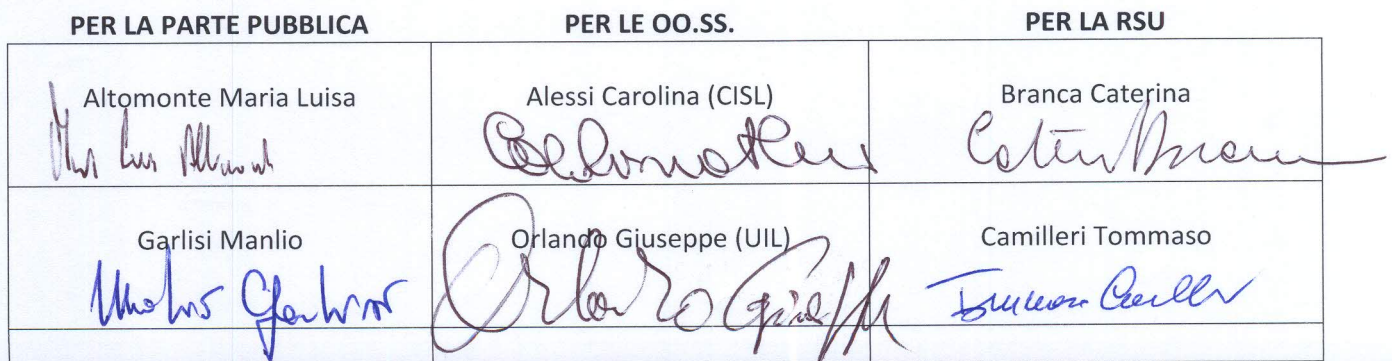 PER LA PARTE PUBBLICA PER LE OO.SS. PER LA RSU
Altomonte Maria Luisa Alessi Carolina (CISL) Branca Caterina
Garlisi Manlio Orlando Giuseppe (UIL) Camilleri Tommaso
Orlando Giuseppe